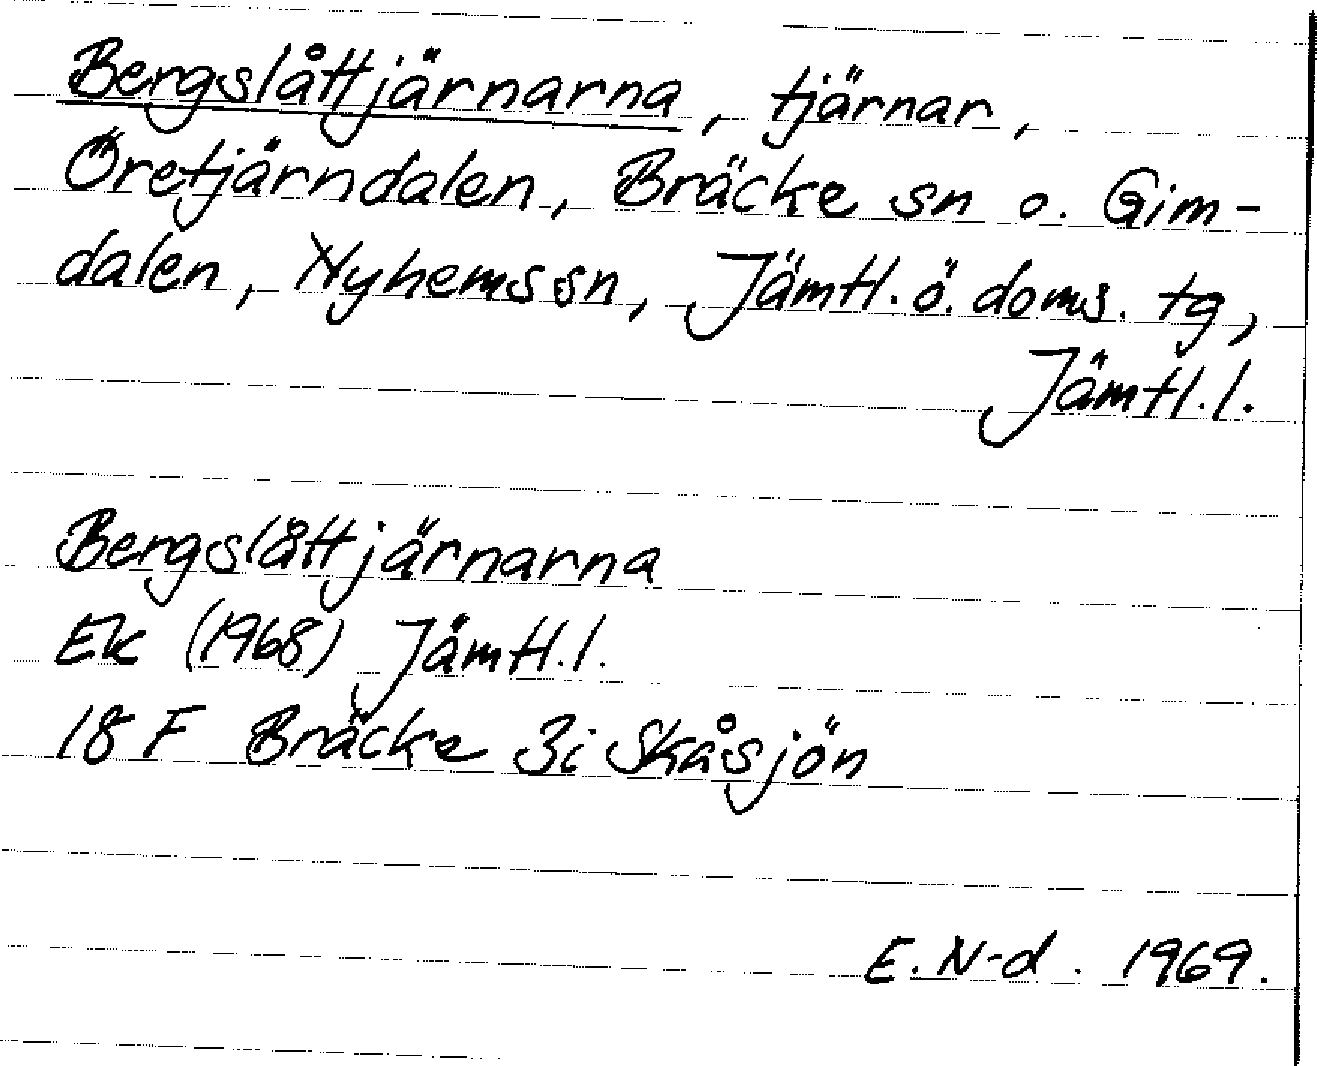 Bergslåttjärnarna, tjärnar,
Öretjärndalen, Bräcke sn o. Gim-
dalen, Nyhems sn, Jämtl. ö. doms. tg,
Jämtl. l.
Bergslåttjärnarna
Ek (1968) Jämtl. l.
18 F Bräcke 3i Skåsjön
E. N-d. 1969.